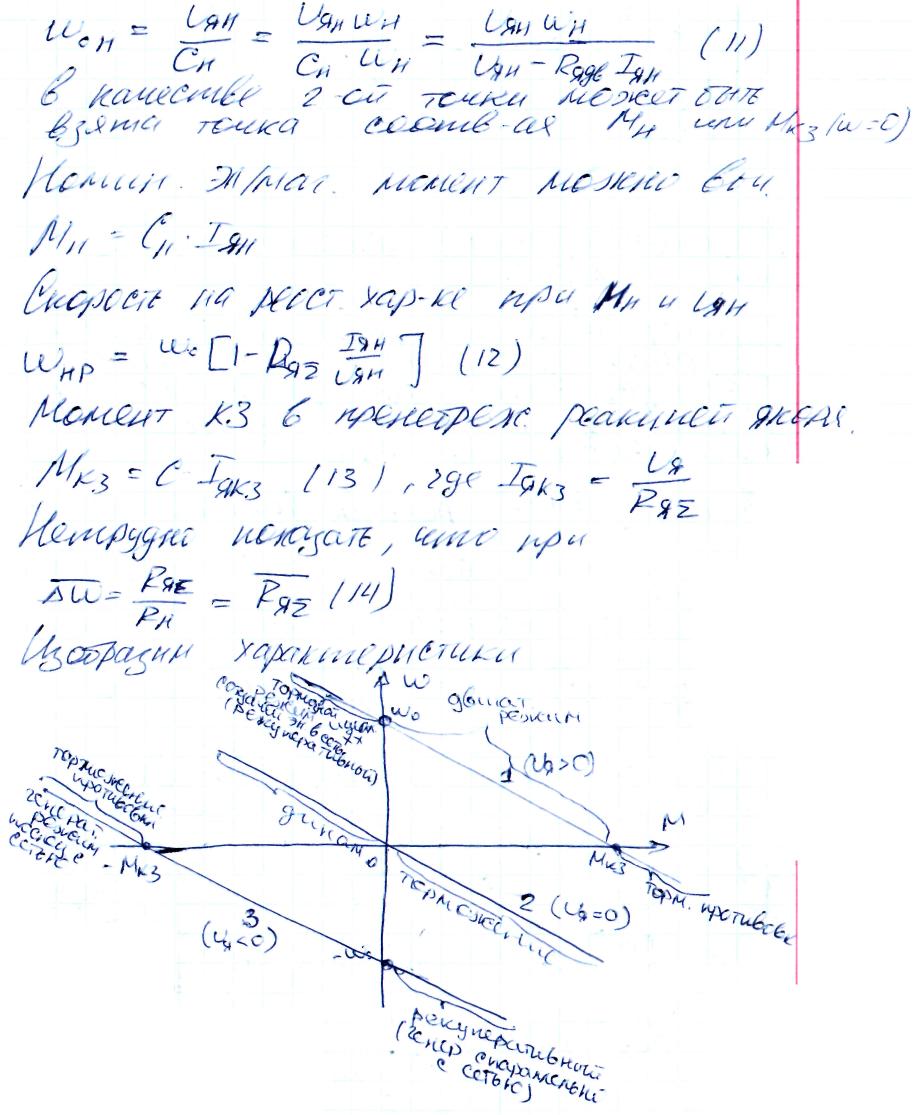 ω₀н = Uян / Cн = Uян ωн / Cн · ωн = Uян ωн / Uян − Rядв Iян (11)
в качестве 2-ой точки может быть
взята точка соотв-ая Mн или Mкз (ω=0)
Номин. эл/маг. момент можно выч.
Mн = Cн · Iян
Скорость на реост. хар-ке при Mн и Uян
ωнр = ω₀ [1 − RяΣ Iян / Uян] (12)
Момент КЗ в пренебреж. реакцией якоря.
Mкз = C Iякз (13), где Iякз = Uя / RяΣ
Нетрудно показать, что при
Δω = RяΣ / Rн = RяΣ (14)
Изобразим характеристики
ω
двигат.
режим
тормозной
режим
отдачи эл. в сеть
(рекуперативный)
ω₀
1 (Uя>0)
торможение
противовкл
генерат.
режим
послед с
сетью
- Mкз
динам.
0
M
Mкз
торм. противовкл
торможение
2 (Uя=0)
3
(Uя<0)
-ω₀
рекуперативный
(генер параллельный
с сетью)